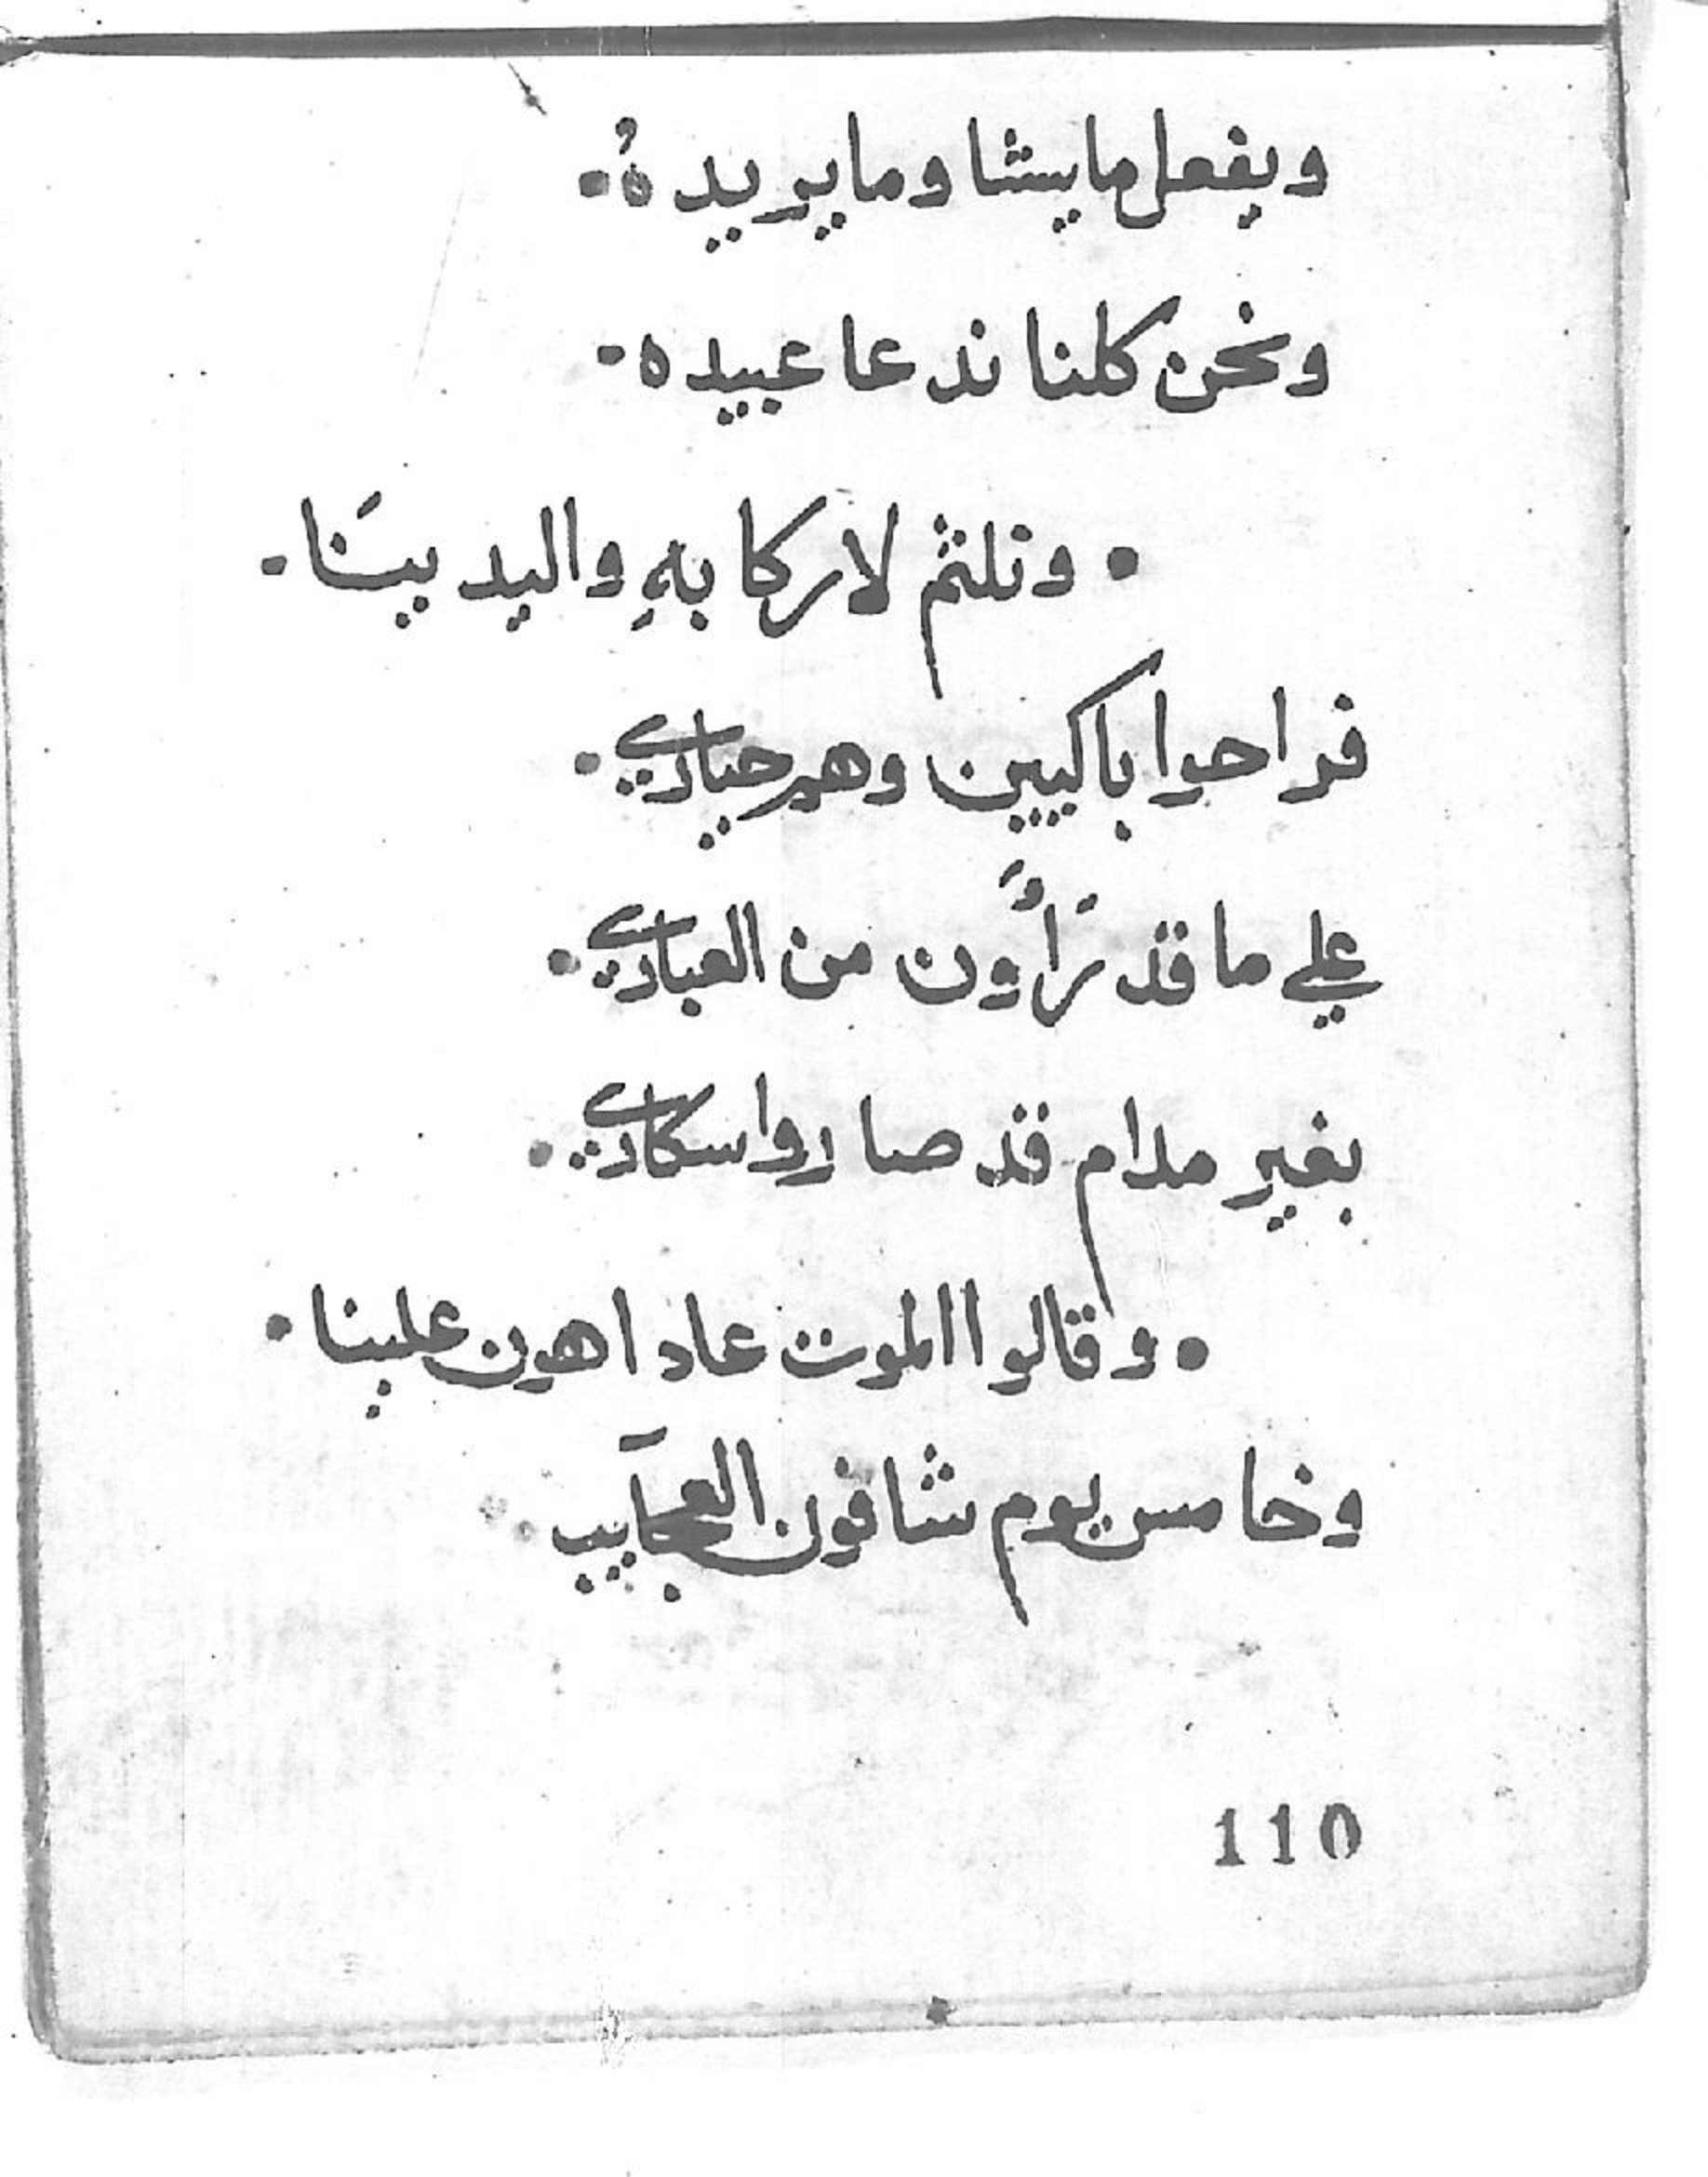 ويفعل مايشا وما يريدهُ.
ونحن كلنا ندعا عبيده.
• ونلثم لاركابهِ واليد بينَا.
فراحوا باكيين وهم حياري.
علي ما قد رَأَوُن من العباري.
بغير مدام قد صاروا سكاري.
• وقالوا الموت عاد اهون علينا •
وخامس يوم شافون العجآيب.
110